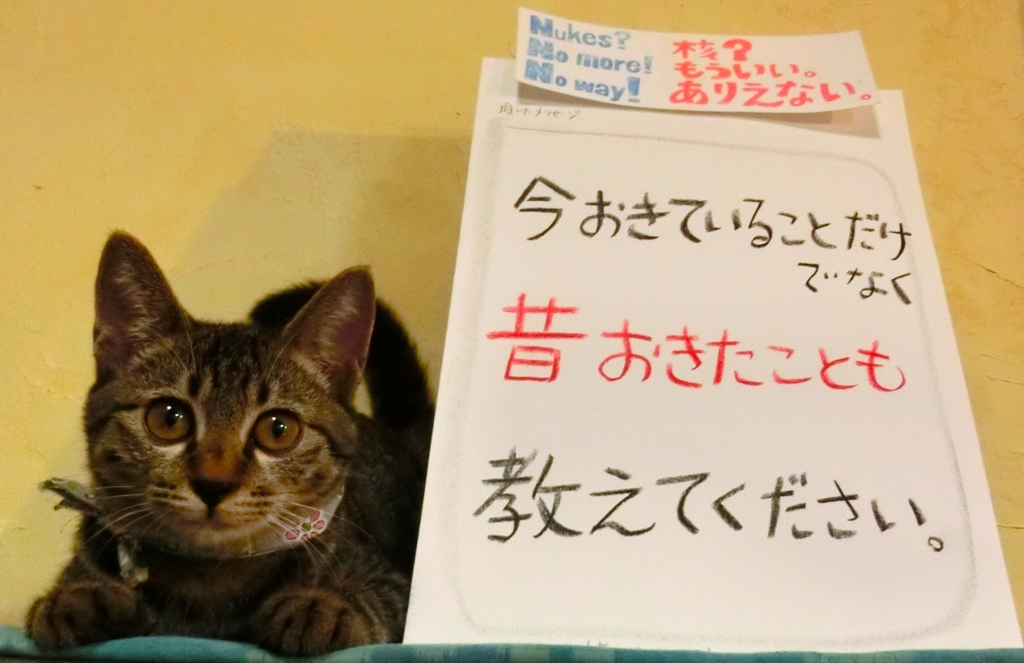 Nukes?
No more!
No way!
核?
もういい。
ありえない。
頂いたメッセージ
今おきていることだけ
でなく
昔おきたことも
教えてください。